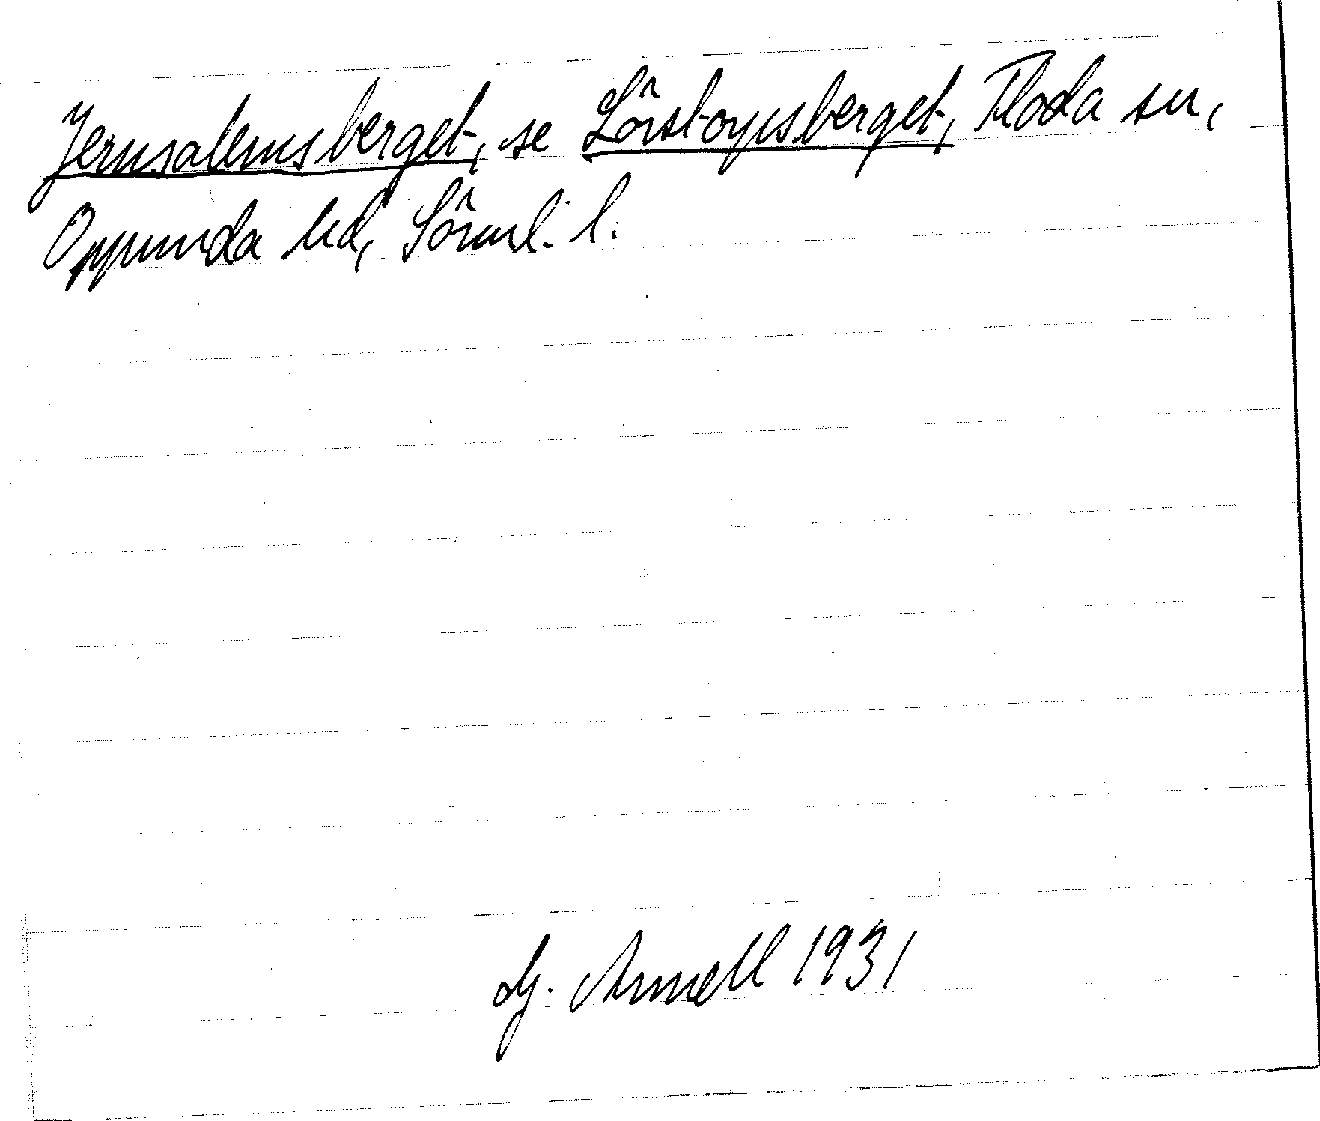 Jerusalemsberget, se Lövstorpsberget, Floda sn,
Oppunda hd, Söderml. l.
Arnell 1931